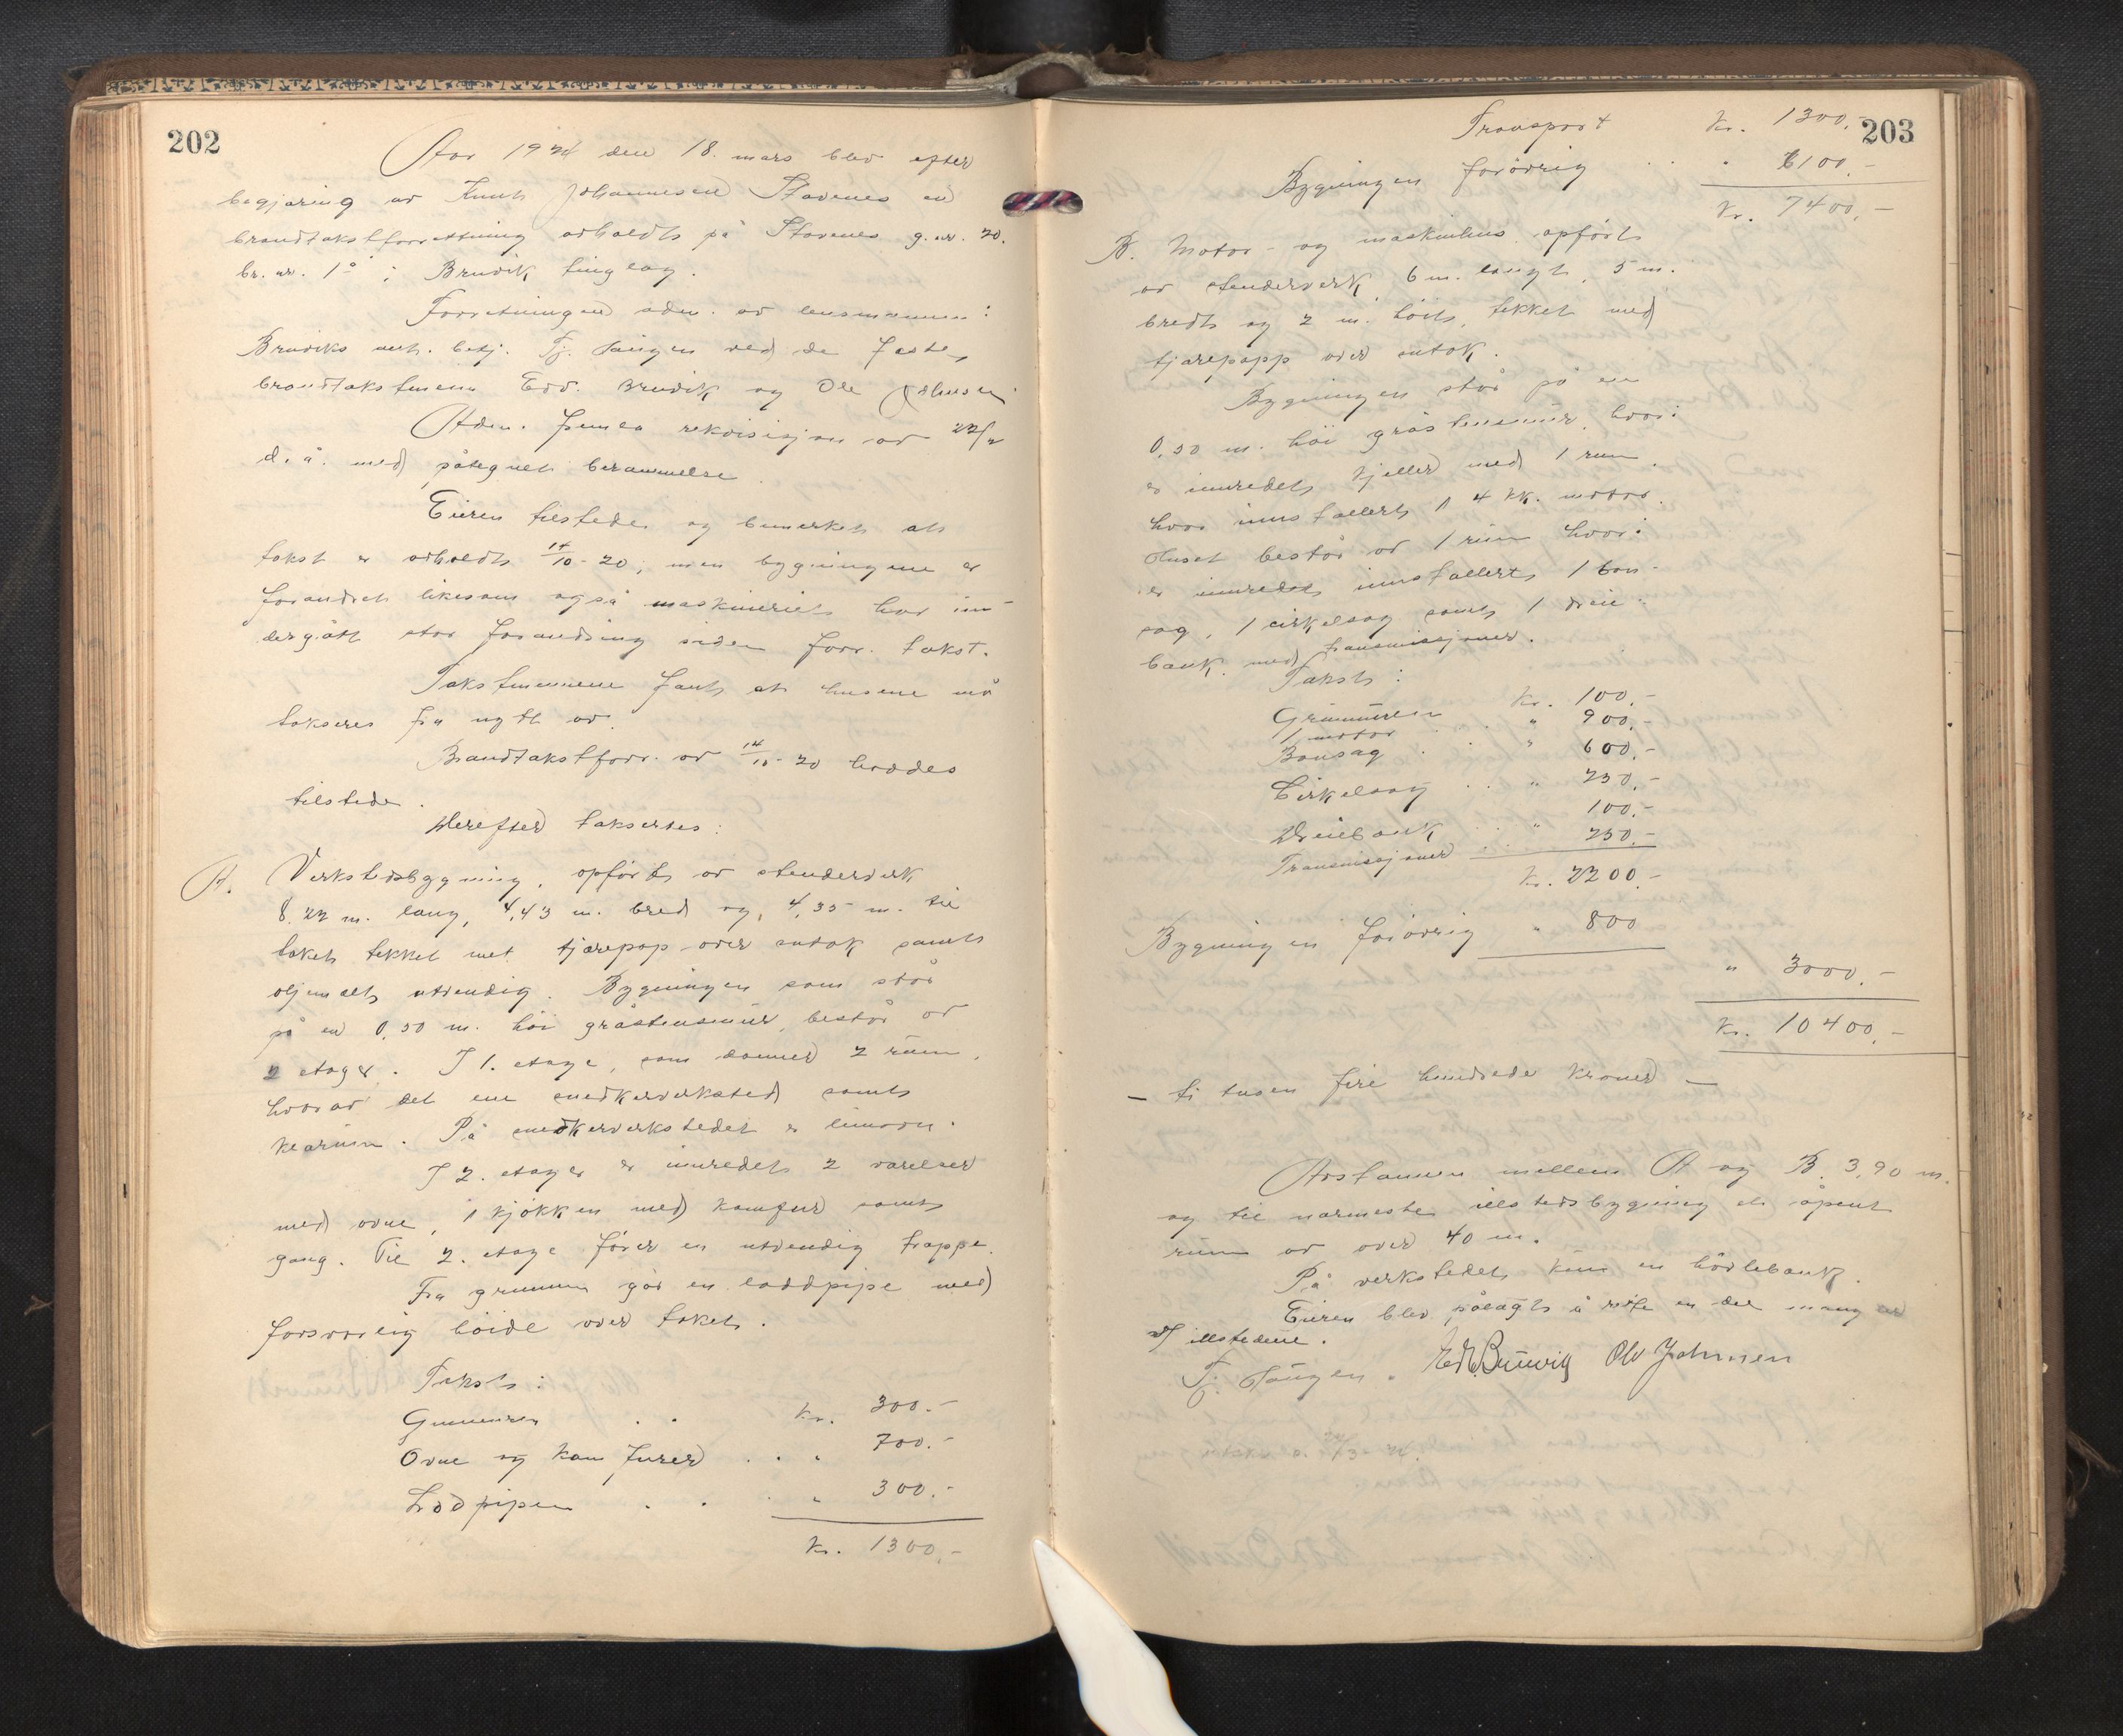 202
Aar 1924 den 18. mars blev efter
begjæring av Knut Johannesen Stavenes en
brandtakstforretning avholdt på Stavenes g. nr. 20.
br. nr. 1ª i Bruvik tinglag.
Forretningen adm. av lensmannen i
Bruviks aut. betj. Tj. Daugen ved de faste
brandtakstmenn Edv. Bruvik og Ole Johnsen
Adm. fremla rekvisisjon av 22/2
d. å. med påtegnet berammelse.
Eieren tilstede og bemerket at
takst er avholdt 14/10-20, men bygningene er
forandret likesom også maskineriet har un-
dergått stor forandring siden forr. takst.
Takstmennene fant at husene må
takseres fra nytt av.
Brandtakstforr. av 14/10-20 havdes
tilstede.
Herefter taksertes:
A. Verkstedsbygning, opført av stenderverk
8.22 m. lang, 4,43 m. bred og, 4,35 m. til
taket tekket met tjærepap over sutak samt
oljemalt utvendig. Bygningen som står
på en 0,50 m. høi gråstensmur, består av
2 etager. I 1. etage, som danner 2 rum,
hvorav det ene snedkerverksted samt
klærum. På snedkerverkstedet er limovn.
I 2. etager er innredet 2 værelser
med ovne, 1 kjøkken med komfur samt
gang. Til 2. etage fører en utvendig trappe.
Fra grunnen går en loddpipe med
forsvarlig høide over taket.
Takst:
Grunnuren . . Kr. 300.-
Ovne og komfurer . . " 700.-
Lodpipen . . . " 300.-
Kr. 1300.-
203
Transport Kr. 1300.-
Bygningen forøvrig . . " 6100.-
Kr. 7400.-
B. Motor- og maskinhus opført
av stenderverk 6 m. langt, 5 m.
bredt og 2 m. høit, tekket med
tjærepapp over sutak.
Bygningen står på en
0,50 m. høi gråstensmur, hvori
er innredet kjeller med 1 rum,
hvor innstallert 1 4 hk. motor.
Huset består av 1 rum hvori
er innredet innstallert 1 bån-
sag, 1 cirkelsag samt 1 dreie-
bank med transmissjoner.
Takst:
Grunnmuren Kr. 100.-
1 motor . . " 900.-
Bånsag . . " 600.-
Cirkelsag . . " 250.-
Dreiebank . . " 100.-
Transmissjoner . . 250.-
Kr. 2200.-
Bygningen forøvrig " 800
" 3000.-
Kr. 10400.-
- ti tusen fire hundrede kroner -
Avstannen mellem A og B 3,90 m.
og til nærmeste illstedsbygning et åpent
rum av over 40 m.
På verkstedet kun en høvlebank.
Eieren blev pålagt å rette en del
av illstedene.
Tj. Daugen. Edv. Bruvik Ole Johnsen